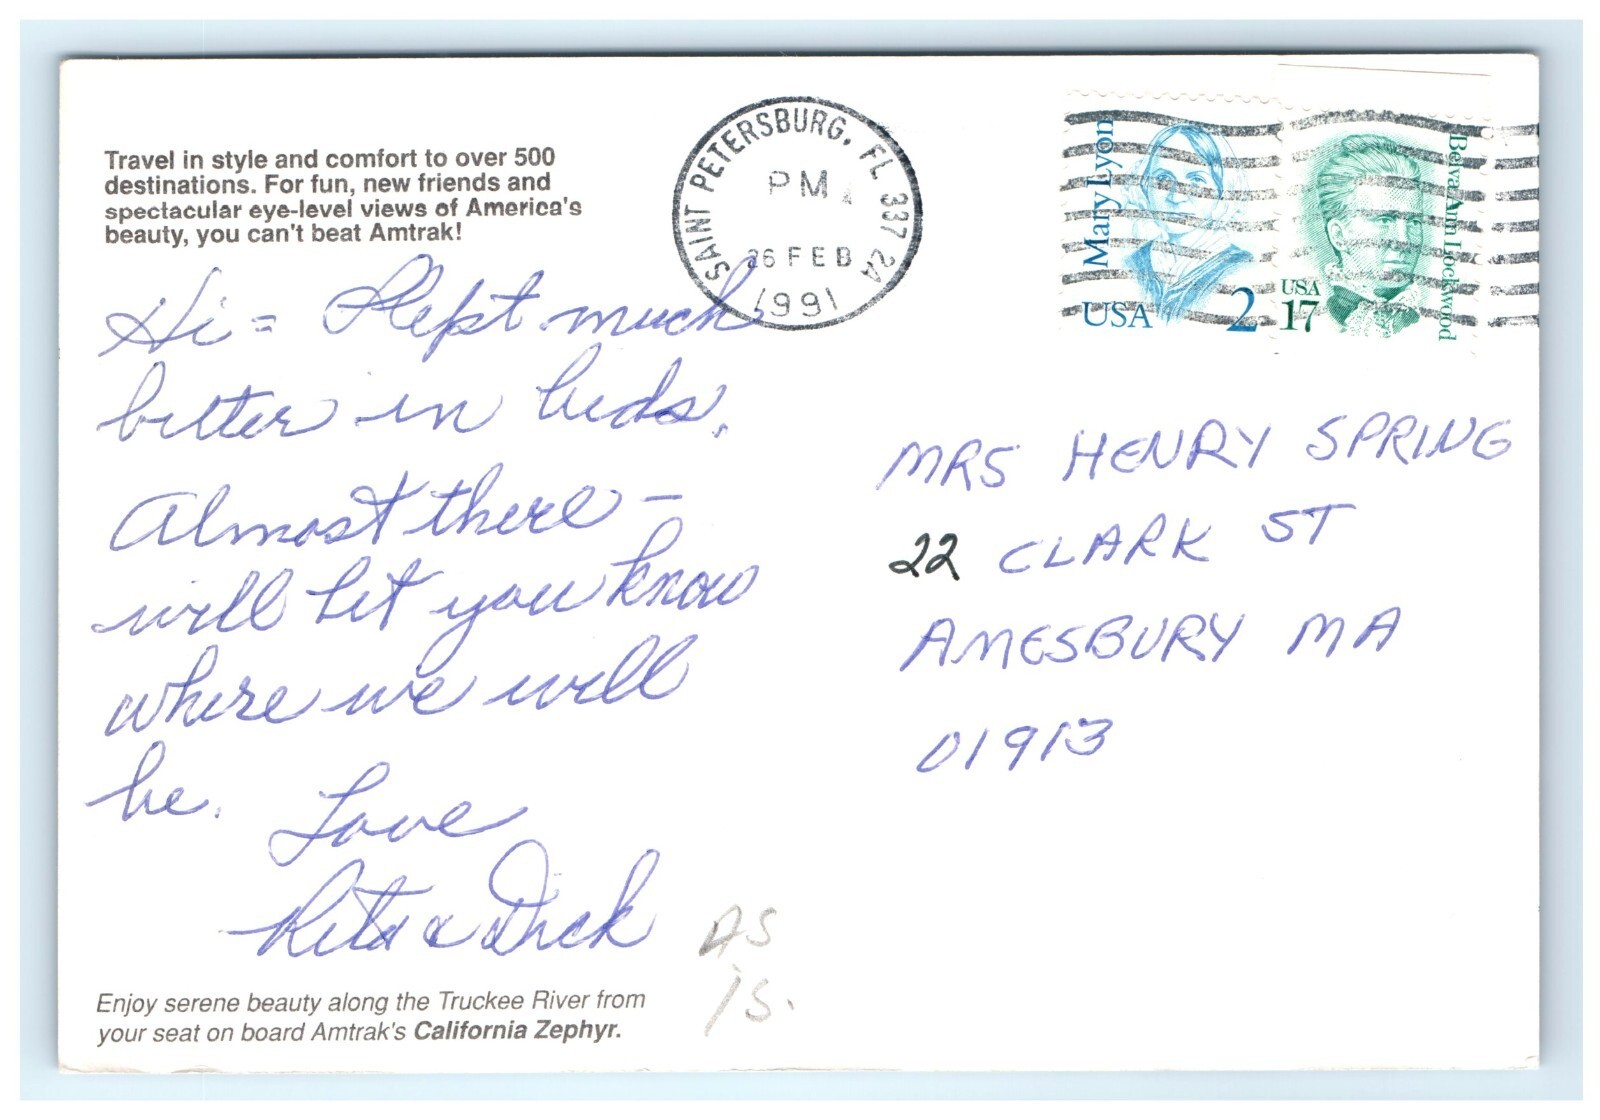 Travel in style and comfort to over 500
destinations. For fun, new friends and
spectacular eye-level views of America's
beauty, you can't beat Amtrak!
Hi = Slept much
better in beds.
Almost there -
will let you know
where we will
be.
Love
Rita & Dick
Enjoy serene beauty along the Truckee River from
your seat on board Amtrak's California Zephyr.
AS
IS.
SAINT PETERSBURG, FL 337 2A
PM
26 FEB
1991
Mary Lyon
USA 2
Belva Ann Lockwood
USA
17
MRS HENRY SPRING
22 CLARK ST
AMESBURY MA
01913